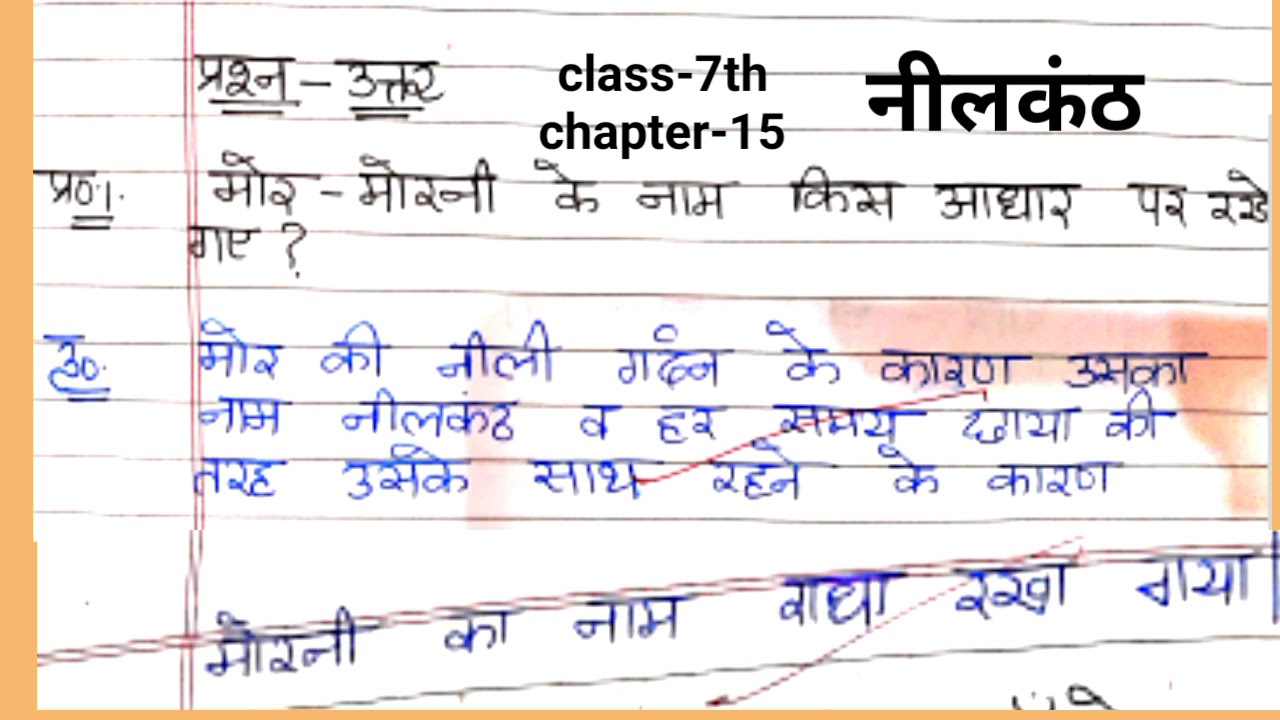 प्रश्न - उत्तर
class-7th
chapter-15
नीलकंठ
प्र०1. मोर - मोरनी के नाम किस आधार पर रखे
गए ?
उ०. मोर की नीली गर्दन के कारण उसका
नाम नीलकंठ व हर समय छाया की
तरह उसके साथ रहने के कारण
मोरनी का नाम राधा रखा गया।